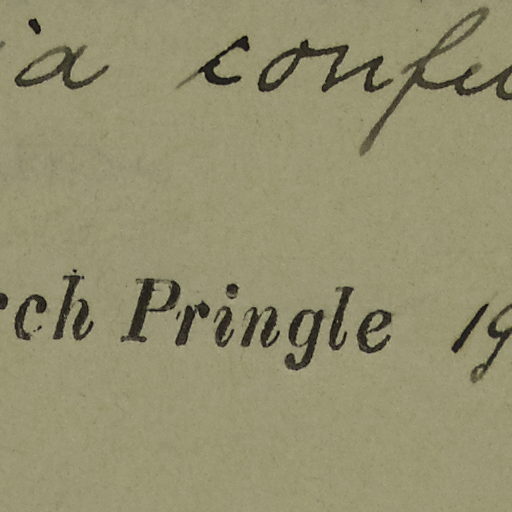 ia confe
rch Pringle 19